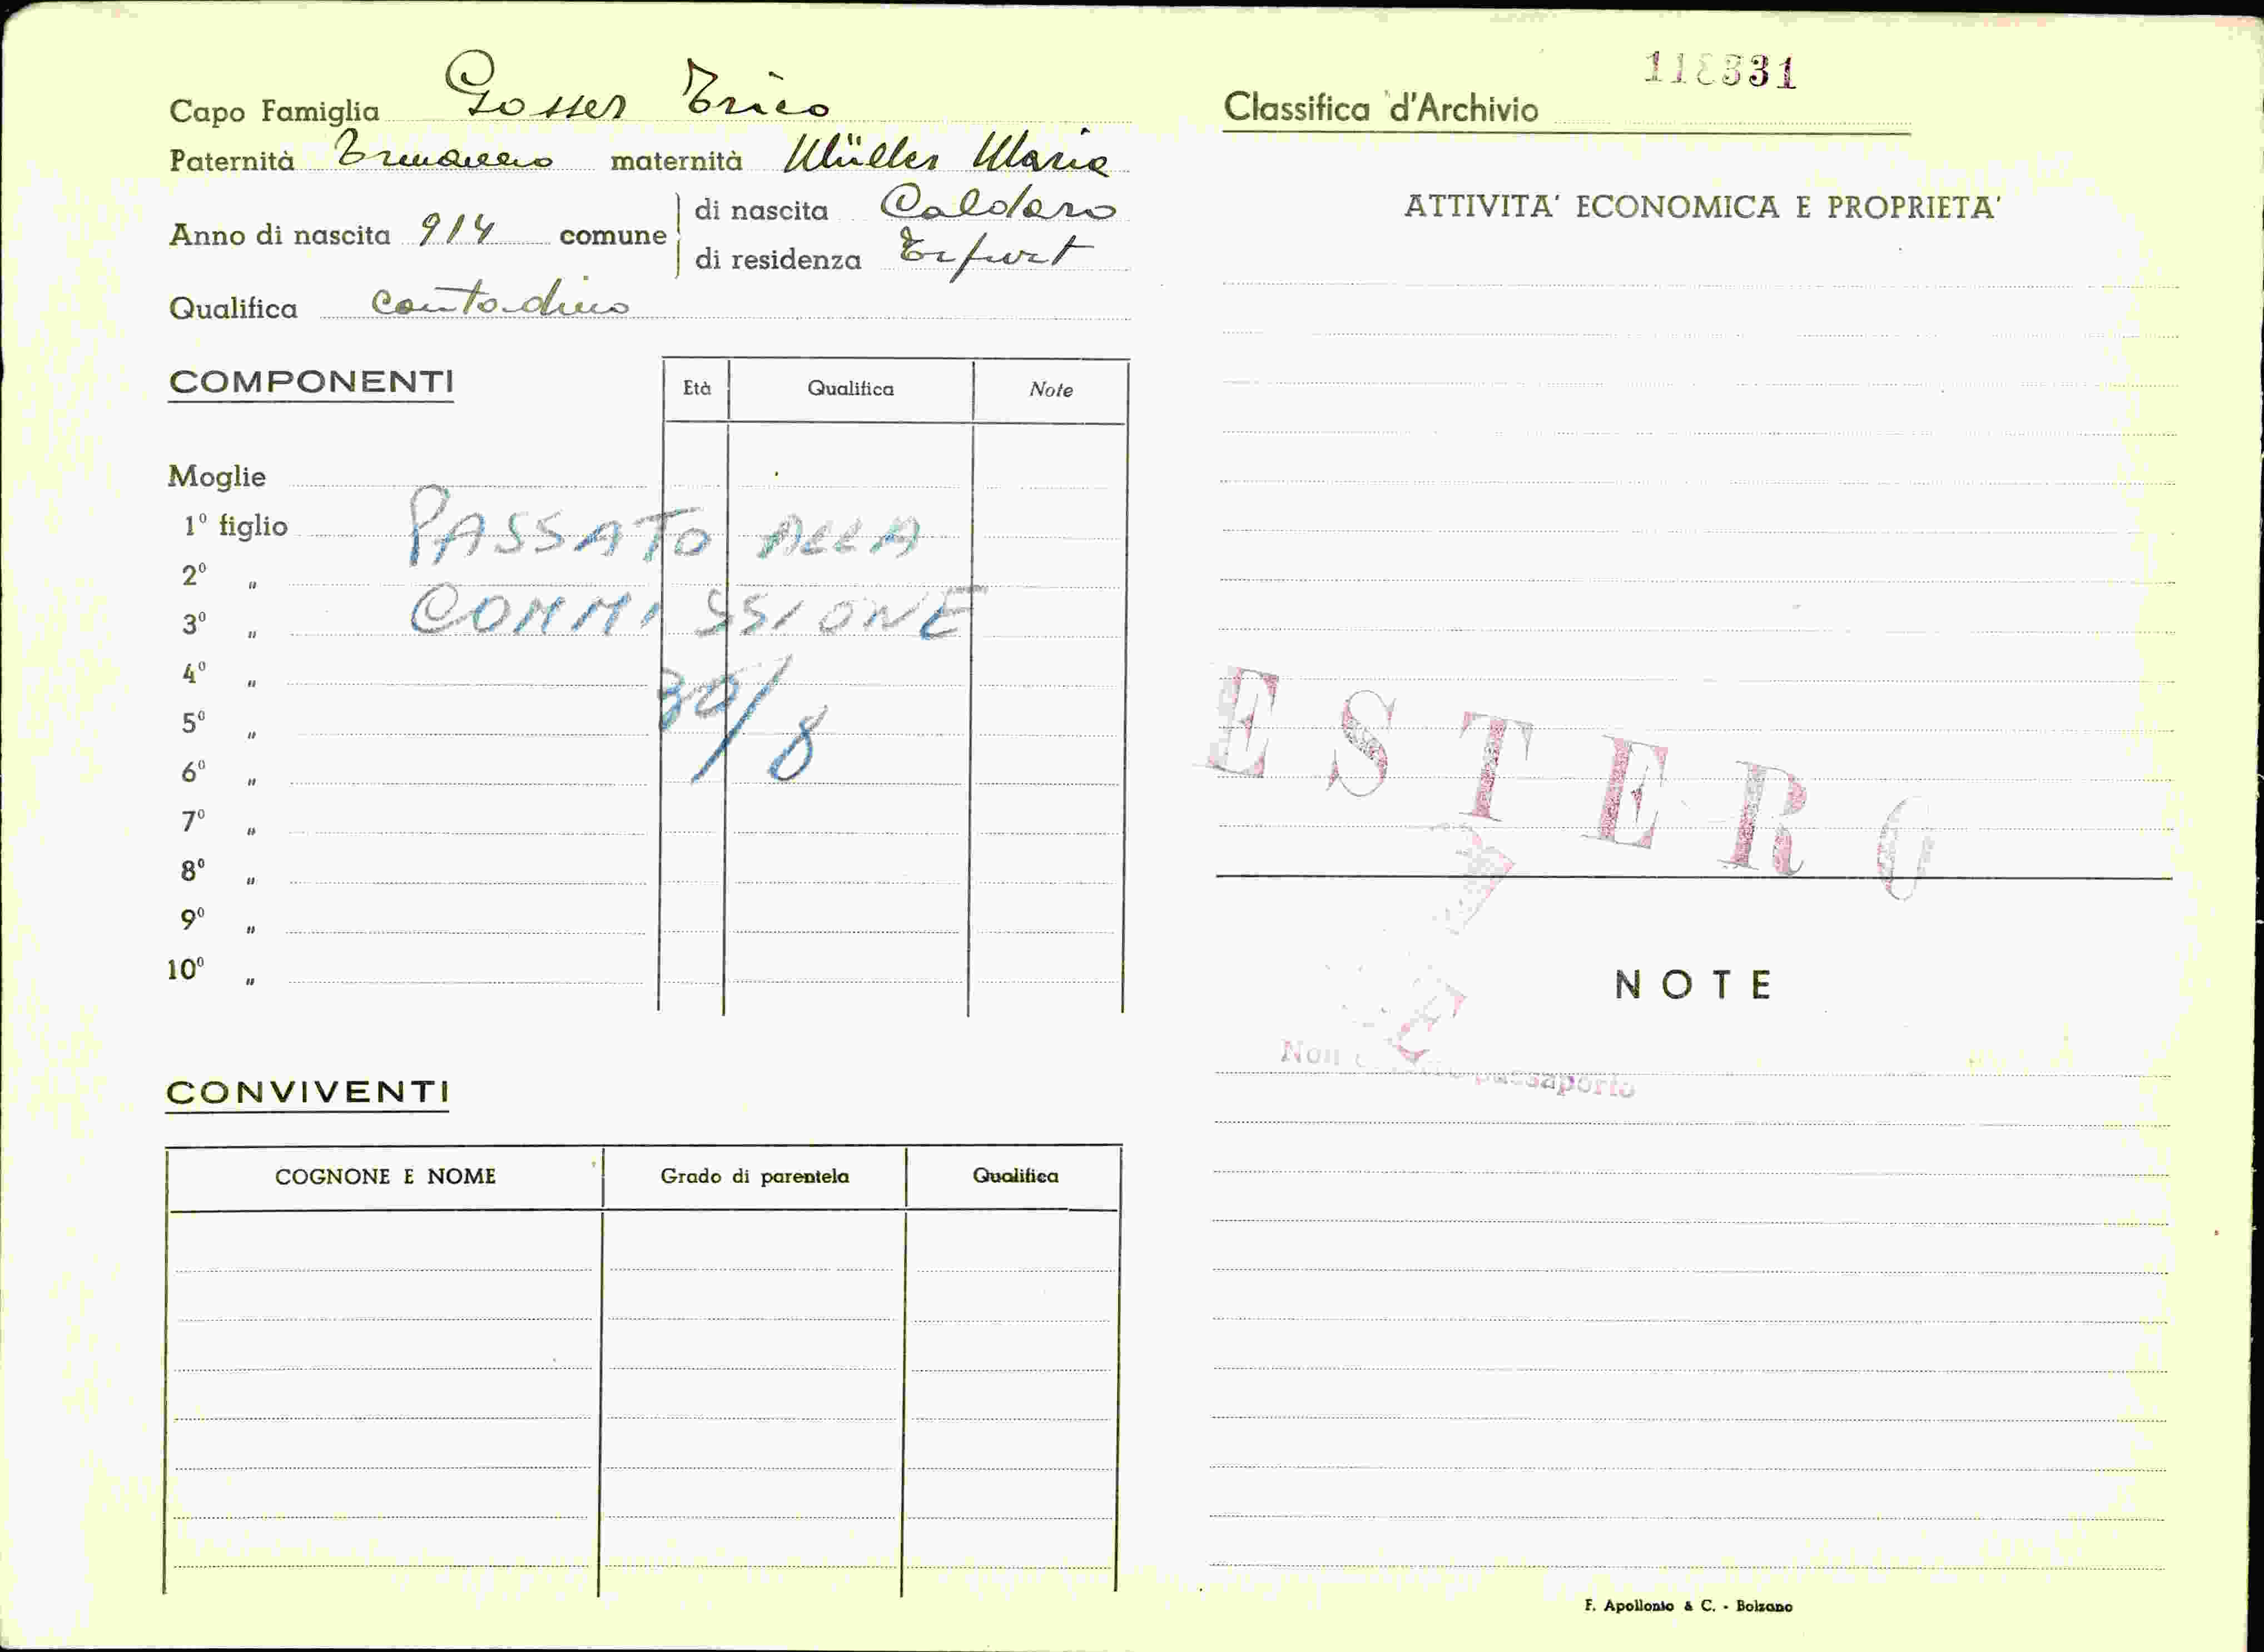 Capo Famiglia Gosser Erico
Paternità Ermanno maternità Müller Maria
Anno di nascita 914 comune di nascita Caldaro
di residenza Erfurt
Qualifica contadino
COMPONENTI
Età Qualifica Note
Moglie
1º figlio
2º "
3º "
4º "
5º "
6º "
7º "
8º "
9º "
10º "
PASSATO ALLA
COMMISSIONE
30/8
CONVIVENTI
COGNONE E NOME Grado di parentela Qualifica
Classifica d'Archivio
ATTIVITA' ECONOMICA E PROPRIETA'
ESTERO
NOTE
Non passaporto
F. Apollonio & C. - Bolzano